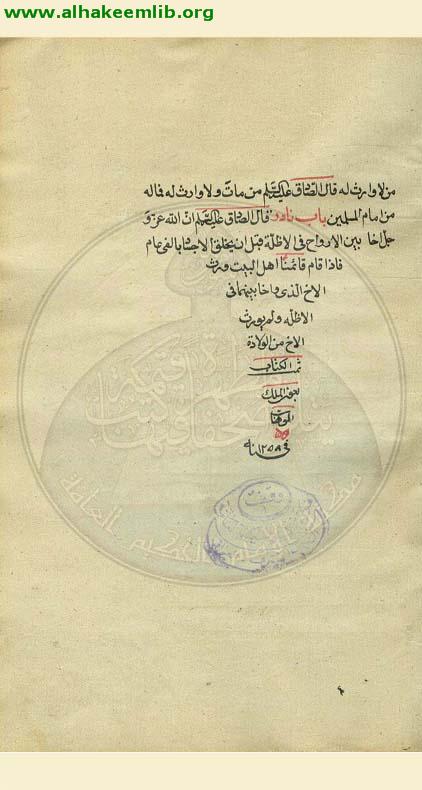 www.alhakeemlib.org
من لا وارث له قال الصادق عليه السلم من مات ولا وارث له فماله
من امام المسلمين باب نادر قال الصادق عليه السلم ان الله عز و
جل اخا بين الارواح فى الاظلة قبل ان يخلق الاجساد بالفى عام
فاذا قام قائمنا اهل البيت ورث
الاخ الذى واخا بينهما فى
الاظله ولم يورث
الاخ من الولادة
تمت الكتاب
بعون الملك
الوهاب
فى سنه ١٢٥٨